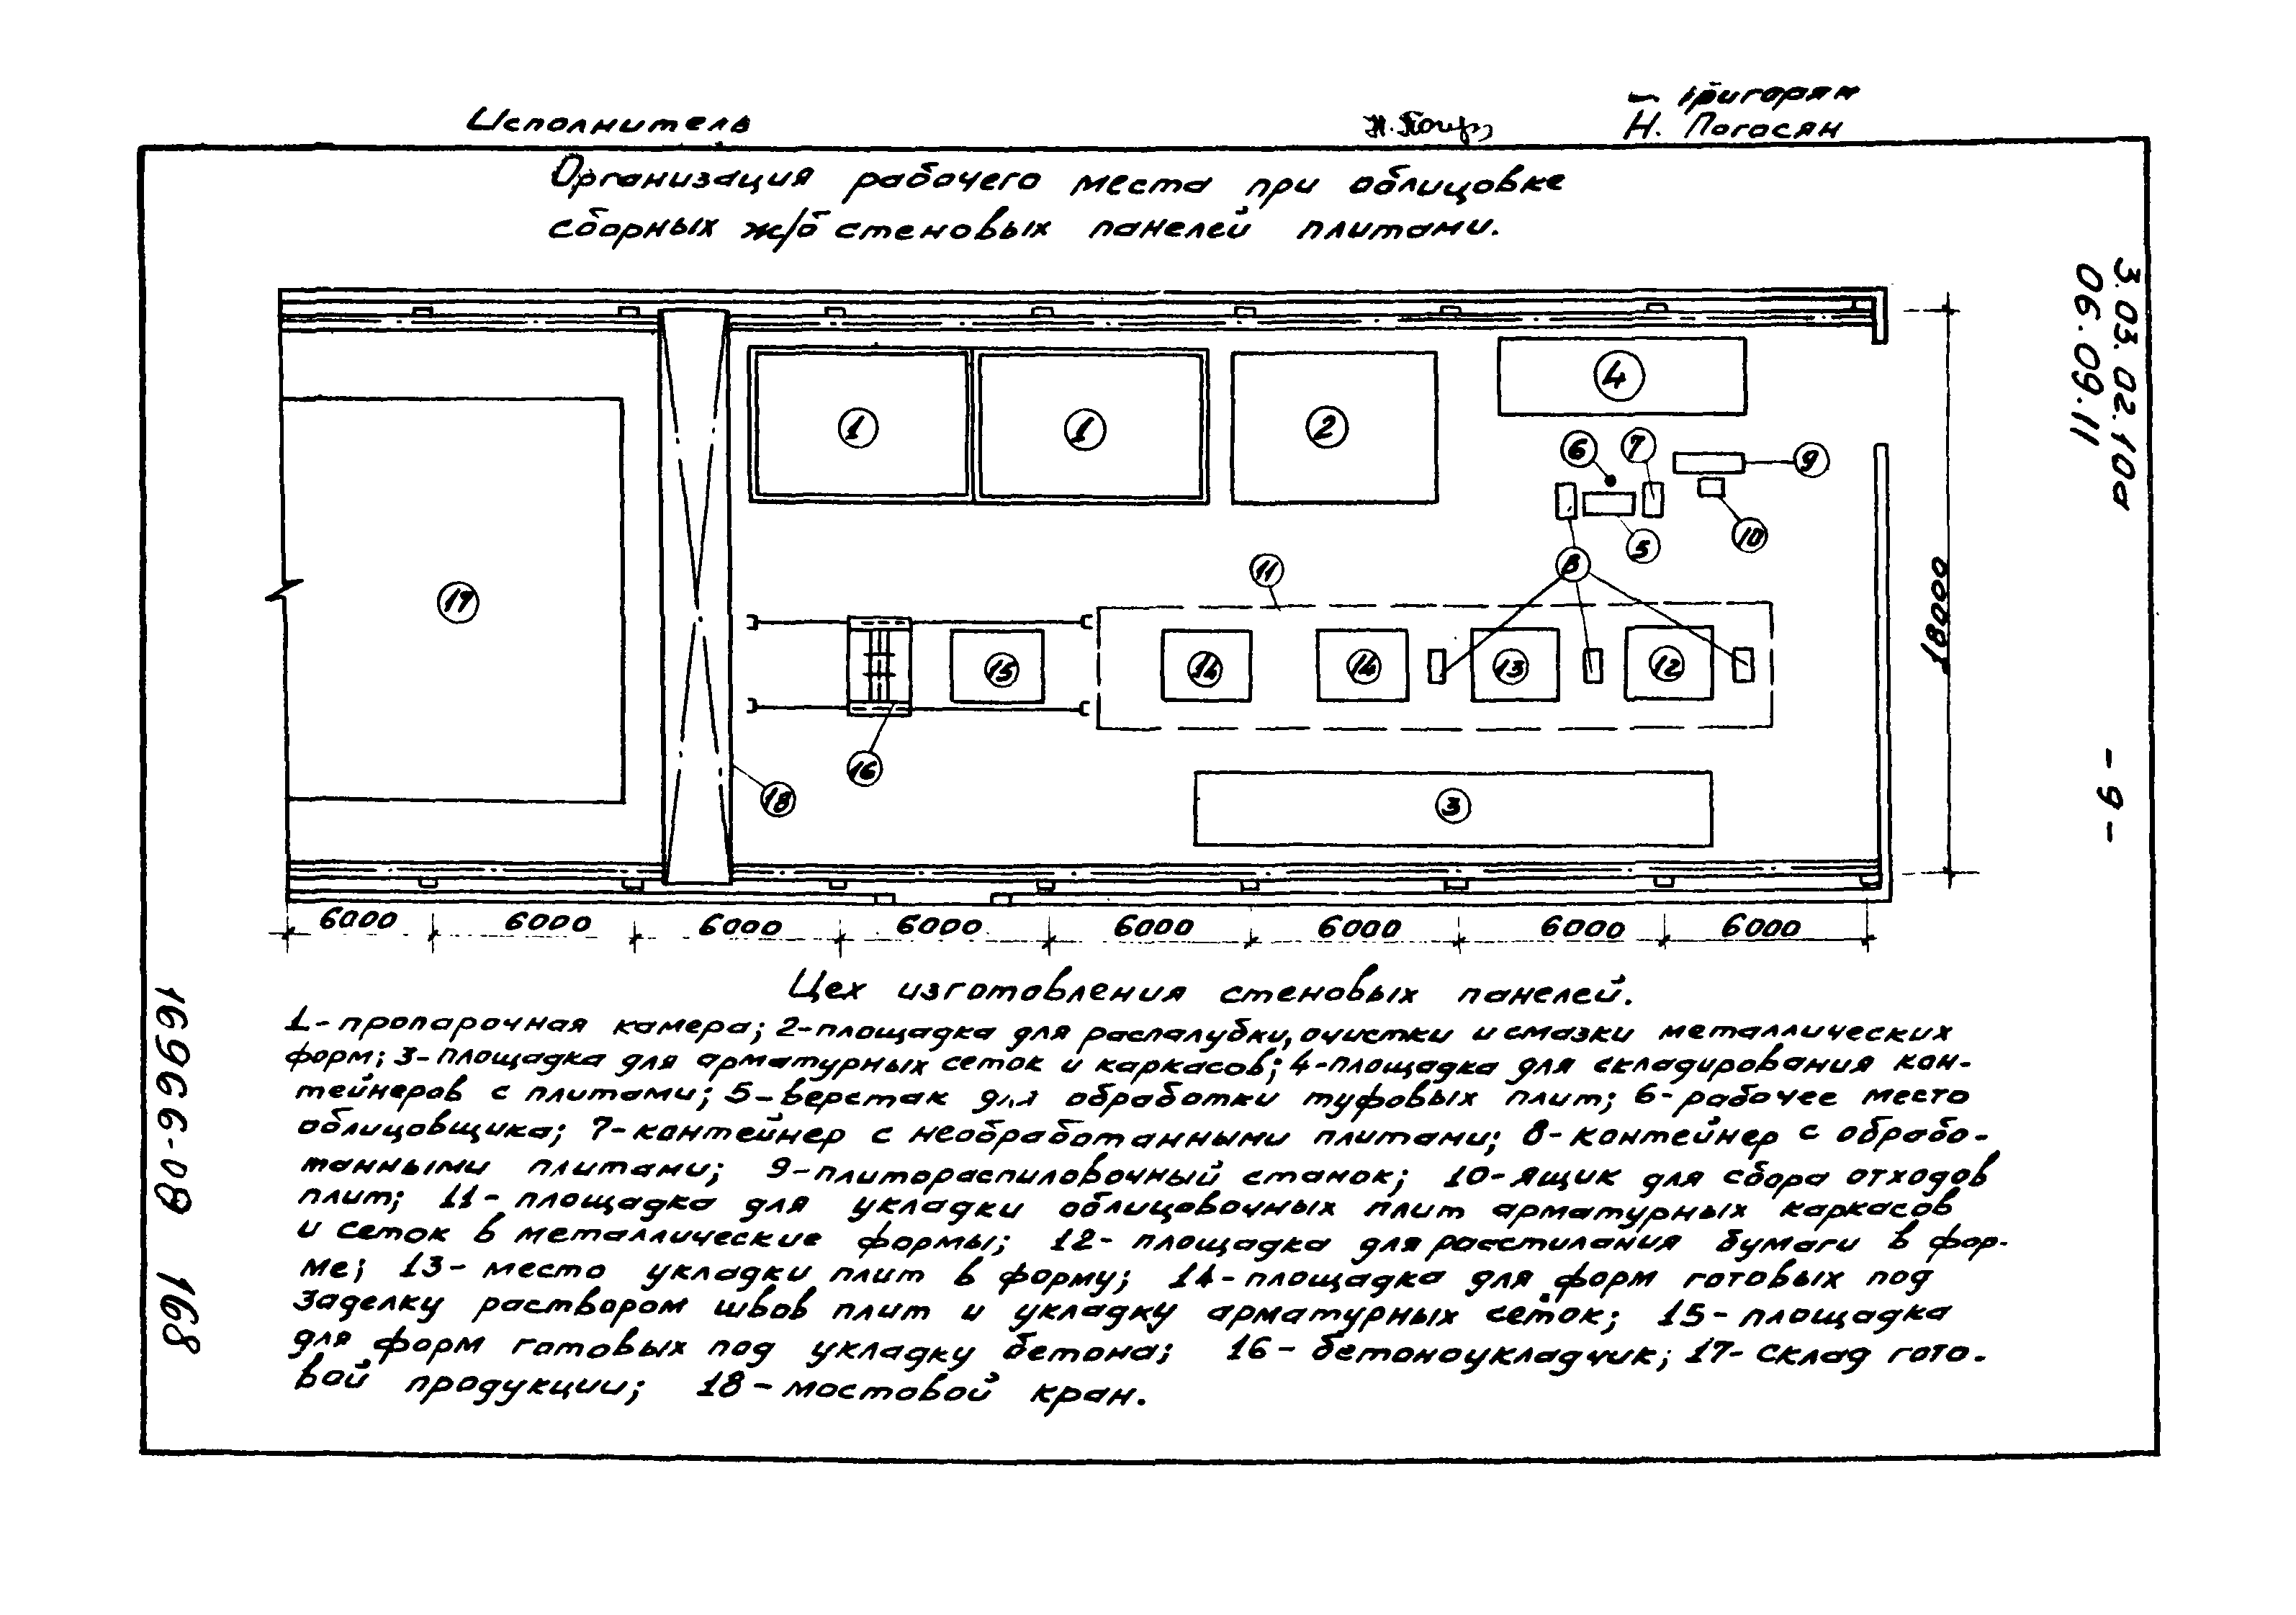 Григорян
Исполнитель Н. Погосян
Организация рабочего места при облицовке
сборных ж/б стеновых панелей плитами.
3.03.02.10а
06.09.11
- 9 -
1
1
2
4
6
7
9
5
10
8
11
17
15
14
14
13
12
16
18
3
18000
6000 6000 6000 6000 6000 6000 6000 6000
Цех изготовления стеновых панелей.
1-пропарочная камера; 2-площадка для распалубки, очистки и смазки металлических
форм; 3-площадка для арматурных сеток и каркасов; 4-площадка для складирования кон-
тейнеров с плитами; 5-верстак для обработки туфовых плит; 6-рабочее место
облицовщика; 7-контейнер с необработанными плитами; 8-контейнер с обрабо-
танными плитами; 9-плитораспиловочный станок; 10-ящик для сбора отходов
плит; 11-площадка для укладки облицовочных плит арматурных каркасов
и сеток в металлические формы; 12-площадка для расстилания бумаги в фор-
ме; 13-место укладки плит в форму; 14-площадка для форм готовых под
заделку раствором швов плит и укладку арматурных сеток; 15-площадка
для форм готовых под укладку бетона; 16-бетоноукладчик; 17-склад гото-
вой продукции; 18-мостовой кран.
16966-08 168